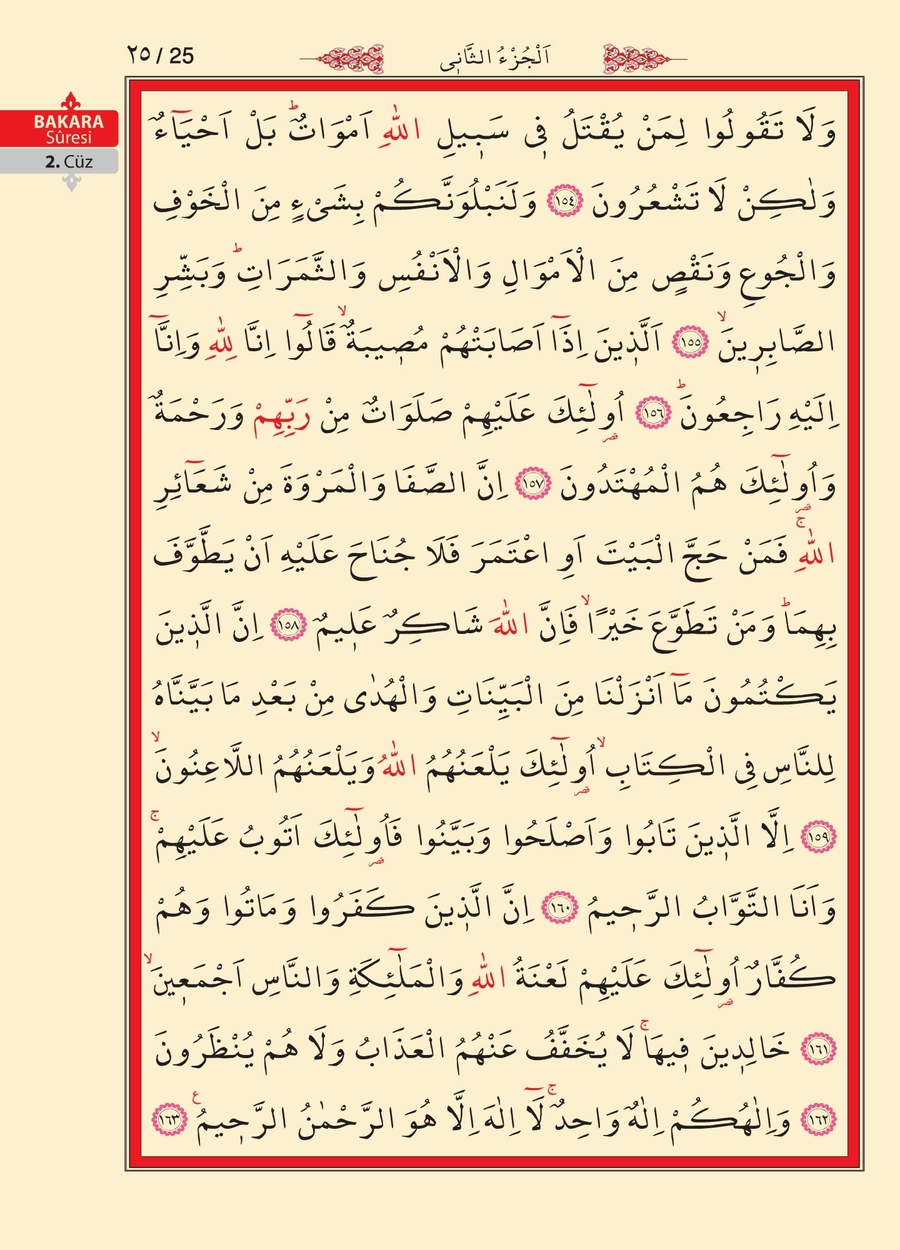 ٢٥ / 25
اَلْجُزْءُ الثَّانِي
BAKARA
Sûresi
2. Cüz
وَلَا تَقُولُوا لِمَنْ يُقْتَلُ فِي سَبِيلِ اللّٰهِ اَمْوَاتٌۜ بَلْ اَحْيَٓاءٌ
وَلٰكِنْ لَا تَشْعُرُونَ ﴿١٥٤﴾ وَلَنَبْلُوَنَّكُمْ بِشَيْءٍ مِنَ الْخَوْفِ
وَالْجُوعِ وَنَقْصٍ مِنَ الْاَمْوَالِ وَالْاَنْفُسِ وَالثَّمَرَاتِۜ وَبَشِّرِ
الصَّابِرِينَۙ ﴿١٥٥﴾ اَلَّذِينَ اِذَٓا اَصَابَتْهُمْ مُصِيبَةٌۙ قَالُٓوا اِنَّا لِلّٰهِ وَاِنَّٓا
اِلَيْهِ رَاجِعُونَۜ ﴿١٥٦﴾ اُو۬لٰٓئِكَ عَلَيْهِمْ صَلَوَاتٌ مِنْ رَبِّهِمْ وَرَحْمَةٌ
وَاُو۬لٰٓئِكَ هُمُ الْمُهْتَدُونَ ﴿١٥٧﴾ اِنَّ الصَّفَا وَالْمَرْوَةَ مِنْ شَعَٓائِرِ
اللّٰهِۚ فَمَنْ حَجَّ الْبَيْتَ اَوِ اعْتَمَرَ فَلَا جُنَاحَ عَلَيْهِ اَنْ يَطَّوَّفَ
بِهِمَاۜ وَمَنْ تَطَوَّعَ خَيْرًاۙ فَاِنَّ اللّٰهَ شَاكِرٌ عَلِيمٌ ﴿١٥٨﴾ اِنَّ الَّذِينَ
يَكْتُمُونَ مَٓا اَنْزَلْنَا مِنَ الْبَيِّنَاتِ وَالْهُدٰى مِنْ بَعْدِ مَا بَيَّنَّاهُ
لِلنَّاسِ فِي الْكِتَابِۙ اُو۬لٰٓئِكَ يَلْعَنُهُمُ اللّٰهُ وَيَلْعَنُهُمُ اللَّاعِنُونَۙ
﴿١٥٩﴾ اِلَّا الَّذِينَ تَابُوا وَاَصْلَحُوا وَبَيَّنُوا فَاُو۬لٰٓئِكَ اَتُوبُ عَلَيْهِمْۚ
وَاَنَا التَّوَّابُ الرَّحِيمُ ﴿١٦٠﴾ اِنَّ الَّذِينَ كَفَرُوا وَمَاتُوا وَهُمْ
كُفَّارٌ اُو۬لٰٓئِكَ عَلَيْهِمْ لَعْنَةُ اللّٰهِ وَالْمَلٰٓئِكَةِ وَالنَّاسِ اَجْمَعِينَۙ
﴿١٦١﴾ خَالِدِينَ فِيهَاۚ لَا يُخَفَّفُ عَنْهُمُ الْعَذَابُ وَلَا هُمْ يُنْظَرُونَ
﴿١٦٢﴾ وَاِلٰهُكُمْ اِلٰهٌ وَاحِدٌۚ لَٓا اِلٰهَ اِلَّا هُوَ الرَّحْمٰنُ الرَّحِيمُ۟ ﴿١٦٣﴾